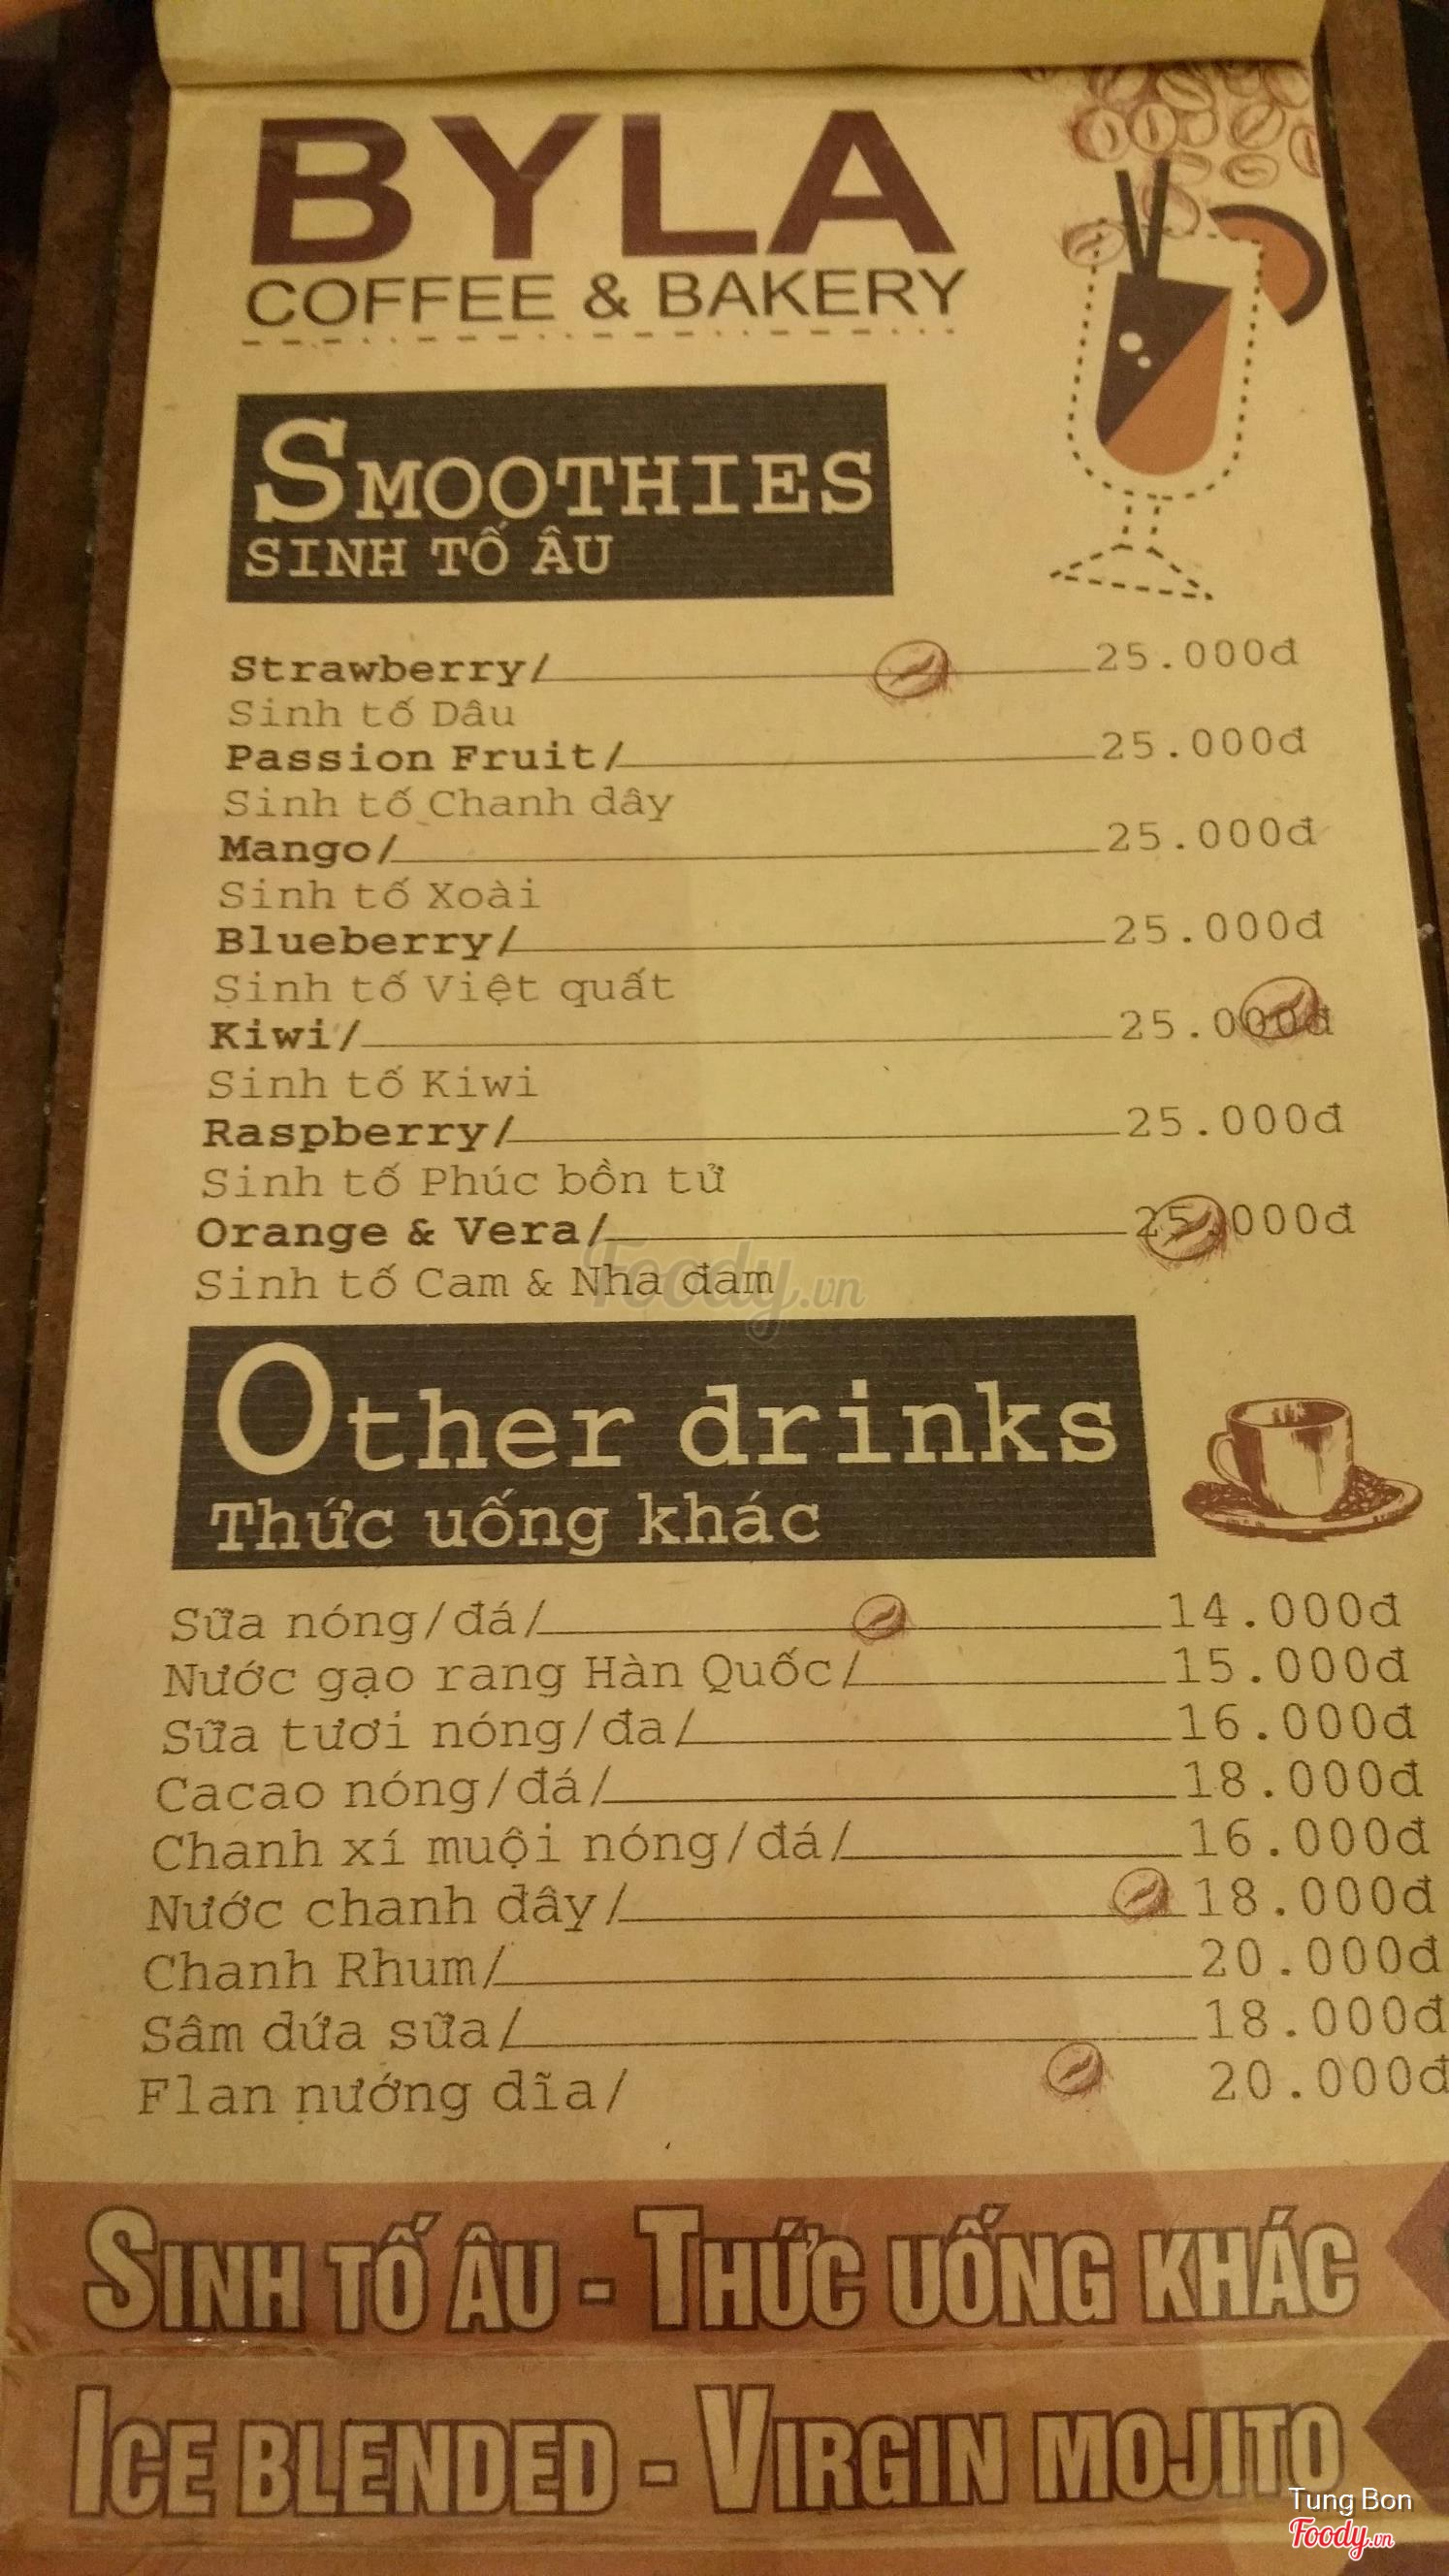 BYLA
COFFEE & BAKERY
SMOOTHIES
SINH TỐ ÂU
Strawberry/ 25.000đ
Sinh tố Dâu
Passion Fruit/ 25.000đ
Sinh tố Chanh dây
Mango/ 25.000đ
Sinh tố Xoài
Blueberry/ 25.000đ
Sinh tố Việt quất
Kiwi/ 25.000đ
Sinh tố Kiwi
Raspberry/ 25.000đ
Sinh tố Phúc bồn tử
Orange & Vera/ 25.000đ
Sinh tố Cam & Nha đam
Foody.vn
Other drinks
Thức uống khác
Sữa nóng/đá/ 14.000đ
Nước gạo rang Hàn Quốc/ 15.000đ
Sữa tươi nóng/đa/ 16.000đ
Cacao nóng/đá/ 18.000đ
Chanh xí muội nóng/đá/ 16.000đ
Nước chanh dây/ 18.000đ
Chanh Rhum/ 20.000đ
Sâm dứa sữa/ 18.000đ
Flan nướng dĩa/ 20.000đ
SINH TỐ ÂU - THỨC UỐNG KHÁC
ICE BLENDED - VIRGIN MOJITO
Tung Bon
Foody.vn